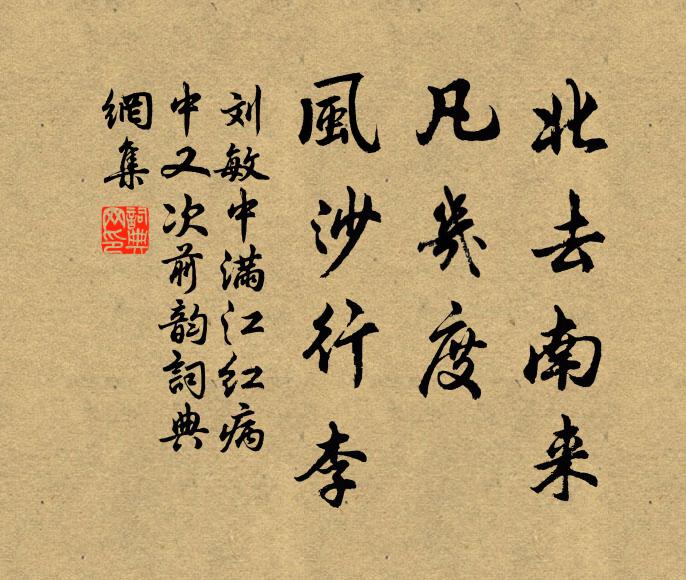 北去南来
凡幾度
風沙行李
刘敏中满江红病
中又次前韵詞典
網集
詞典网印